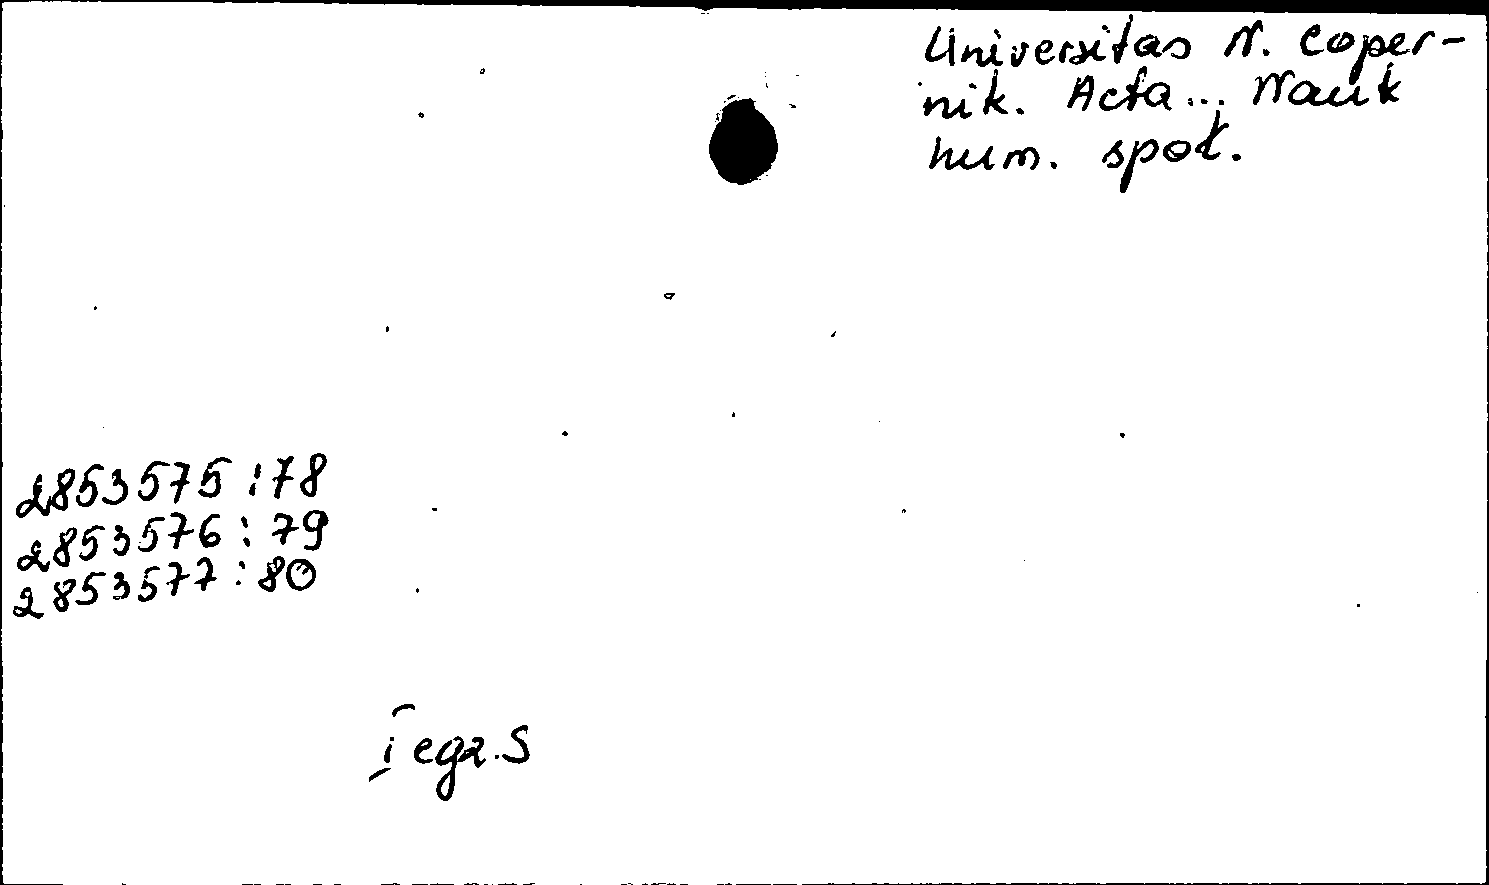 Universitas N. Coper-
nik. Acta... Nauk
hum. społ.
2853575:78
2853576:79
2853577:80
I egz. S